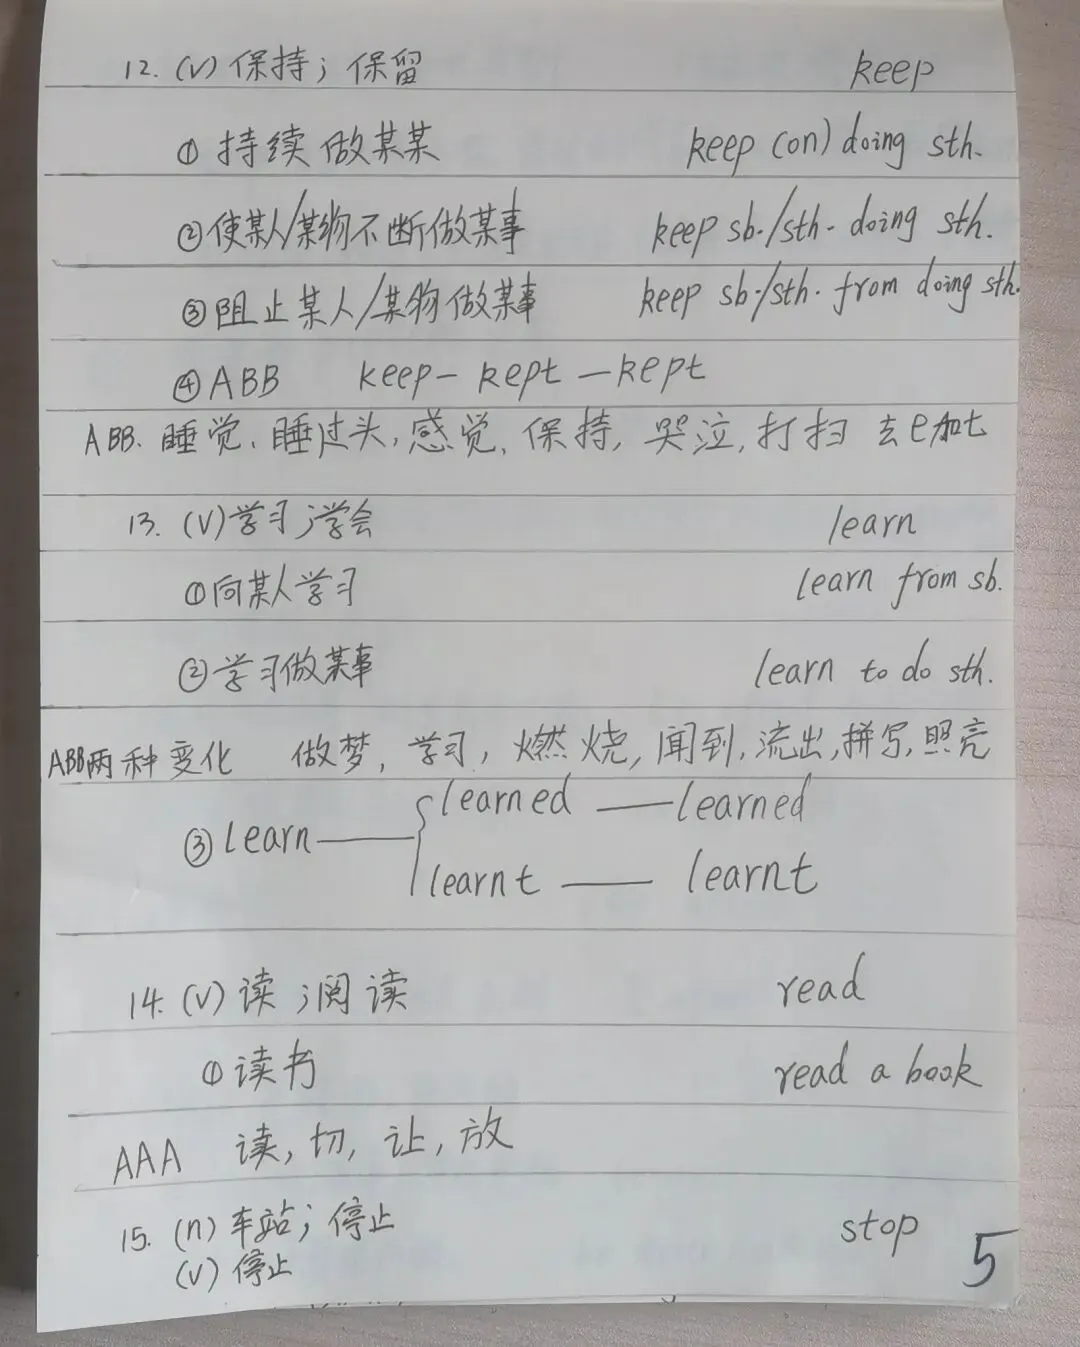 12. (v) 保持；保留 keep
① 持续做某某 keep (on) doing sth.
② 使某人/某物不断做某事 keep sb./sth. doing sth.
③ 阻止某人/某物做某事 keep sb./sth. from doing sth.
④ ABB keep— kept —kept
ABB. 睡觉, 睡过头, 感觉, 保持, 哭泣, 打扫 去e加t
13. (v) 学习；学会 learn
① 向某人学习 learn from sb.
② 学习做某事 learn to do sth.
ABB两种变化 做梦, 学习, 燃烧, 闻到, 流出, 拼写, 照亮
learned — learned
③ learn —
learnt — learnt
14. (v) 读；阅读 read
① 读书 read a book
AAA 读, 切, 让, 放
15. (n) 车站；停止 stop
(v) 停止
5